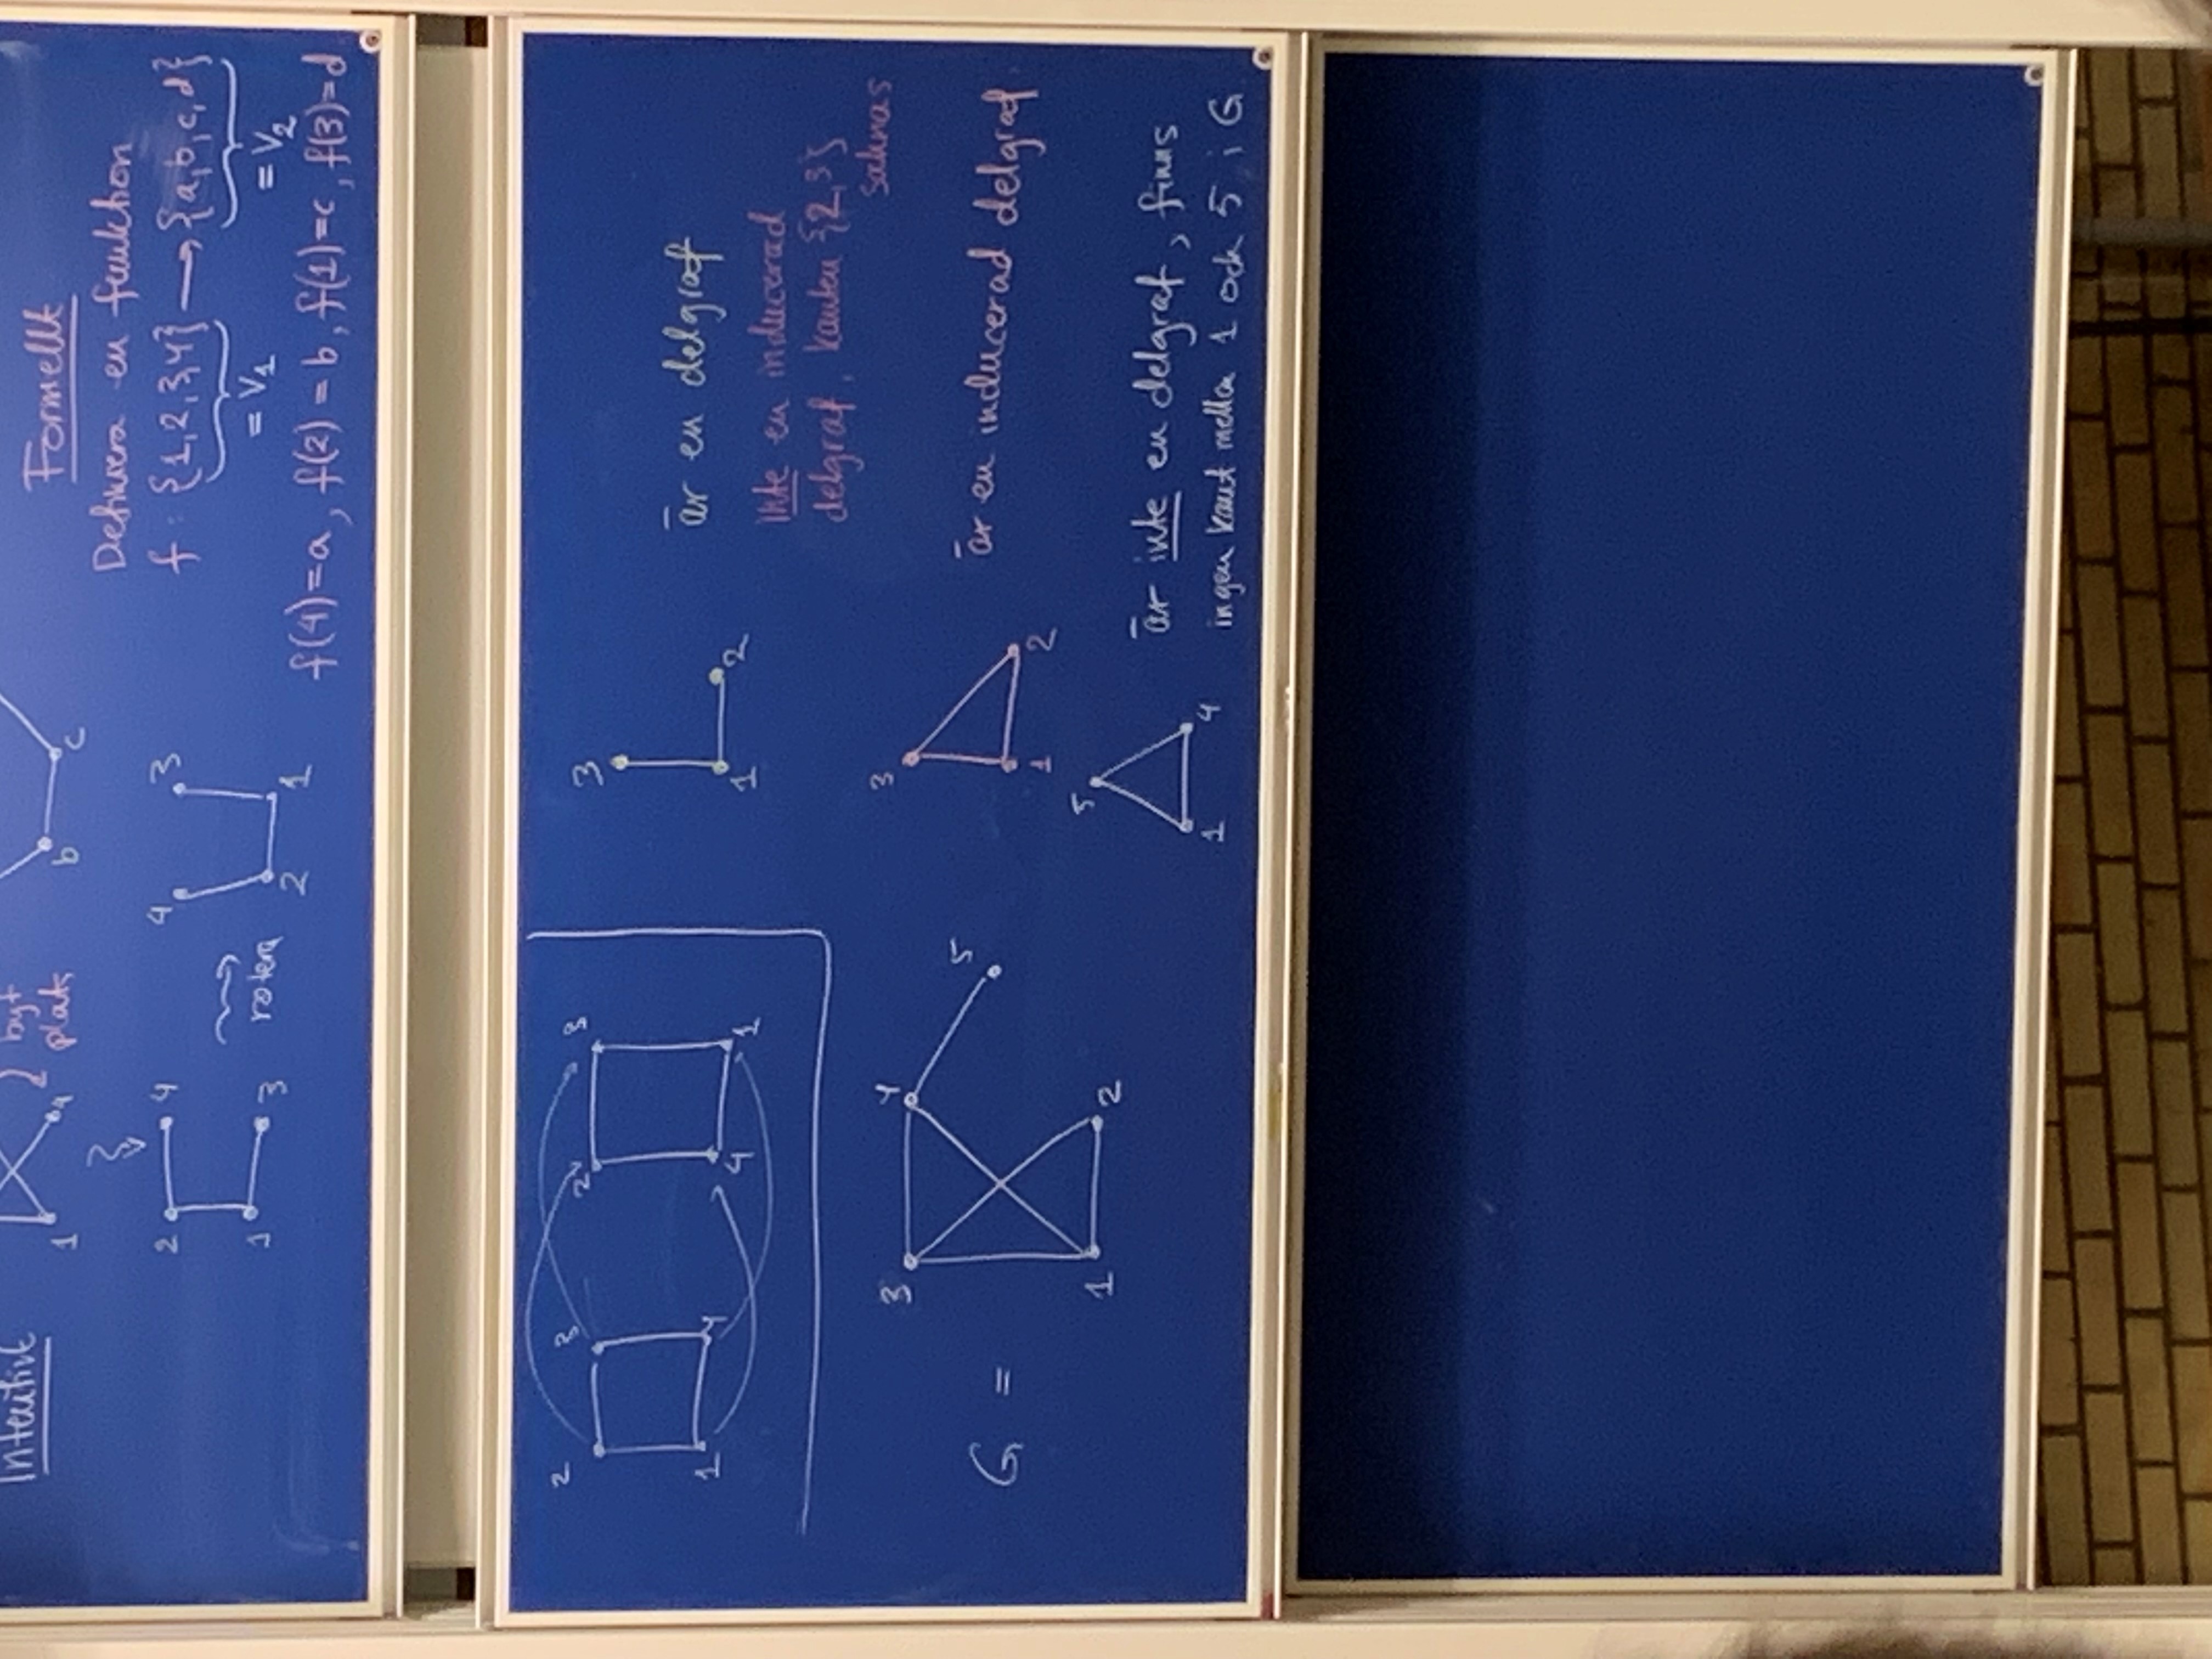 Intuitivt
1
4
byt
plats
2
4
1
3
rotera
4
3
2
1
b
c
Formellt
Definiera en funktion
f : {1,2,3,4} → {a,b,c,d}
= V₁
= V₂
f(4)=a, f(2)=b, f(1)=c, f(3)=d
2
3
1
4
2
3
4
1
G =
3
4
5
1
2
3
1
2
är en delgraf
inte en inducerad
delgraf, kanten {2,3}
saknas
3
1
2
är en inducerad delgraf
5
1
4
är inte en delgraf, finns
ingen kant mellan 1 och 5 i G